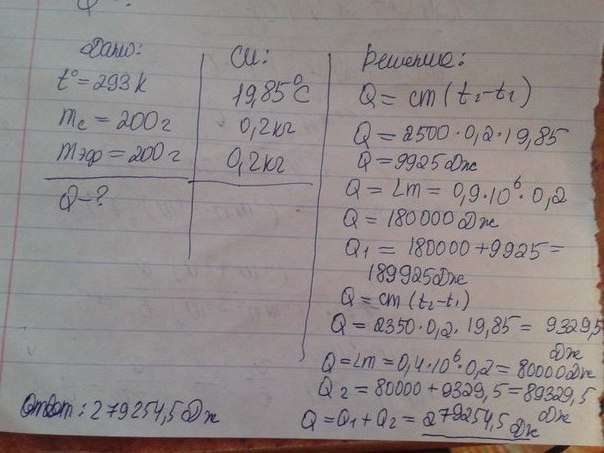 Q-?
Дано:
t° = 293 k
mс = 200 г
mэф = 200 г
Q-?
СИ:
19,85°C
0,2 кг
0,2 кг
Решение:
Q = cm (t₂-t₁)
Q = 2500·0,2·19,85
Q = 9925 Дж
Q = Lm = 0,9·10⁶·0,2
Q = 180000 Дж
Q₁ = 180000 + 9925 =
189925 Дж
Q = cm (t₂-t₁)
Q = 2350·0,2·19,85 = 9329,5
Дж
Q = Lm = 0,4·10⁶·0,2 = 80000 Дж
Q₂ = 80000 + 9329,5 = 89329,5
Дж
Q = Q₁ + Q₂ = 279254,5 Дж
Ответ: 279254,5 Дж